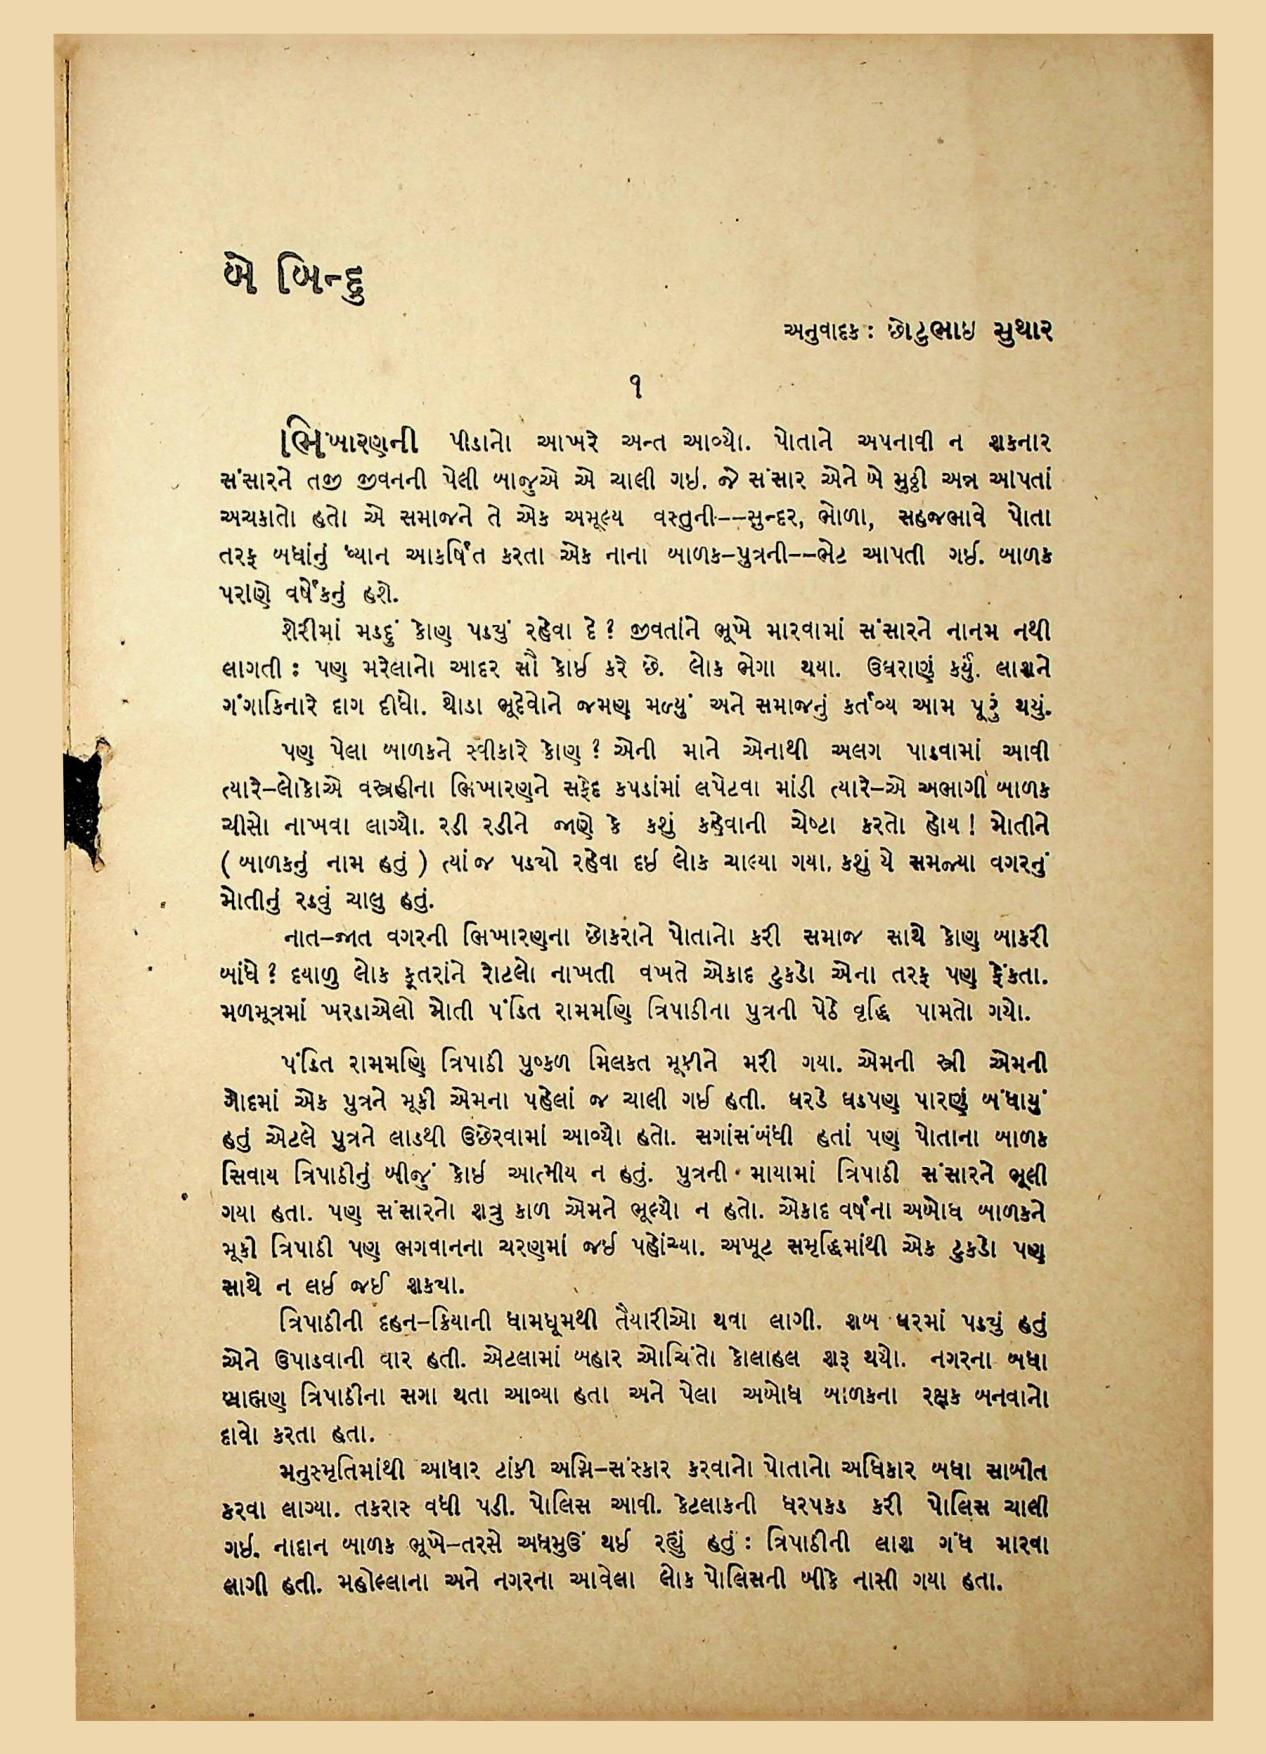 બે બિન્દુ
અનુવાદક : છોટુભાઇ સુથાર
૧
ભિખારણની પીડાનો આખરે અન્ત આવ્યો. પોતાને અપનાવી ન શકનાર
સંસારને તજી જીવનની પેલી બાજુએ એ ચાલી ગઇ. જે સંસાર એને બે મુઠ્ઠી અન્ન આપતાં
અચકાતો હતો એ સમાજને તે એક અમૂલ્ય વસ્તુની--સુન્દર, ભોળા, સહજભાવે પોતા
તરફ બધાંનું ધ્યાન આકર્ષિત કરતા એક નાના બાળક-પુત્રની--ભેટ આપતી ગઇ. બાળક
પરાણે વર્ષેકનું હશે.
શેરીમાં મડદું કોણ પડયું રહેવા દે ? જીવતાંને ભૂખે મારવામાં સંસારને નાનમ નથી
લાગતી : પણ મરેલાનો આદર સૌ કોઈ કરે છે. લોક ભેગા થયા. ઉઘરાણું કર્યું. લાશને
ગંગાકિનારે દાગ દીધો. થોડા ભૂદેવોને જમણ મળ્યું અને સમાજનું કર્તવ્ય આમ પૂરું થયું.
પણ પેલા બાળકને સ્વીકારે કોણ ? એની માને એનાથી અલગ પાડવામાં આવી
ત્યારે-લોકોએ વસ્ત્રહીના ભિખારણને સફેદ કપડાંમાં લપેટવા માંડી ત્યારે-એ અભાગી બાળક
ચીસો નાખવા લાગ્યો. રડી રડીને જાણે કે કશું કહેવાની ચેષ્ટા કરતો હોય ! મોતીને
( બાળકનું નામ હતું ) ત્યાં જ પડયો રહેવા દઇ લોક ચાલ્યા ગયા. કશું યે સમજ્યા વગરનું
મોતીનું રડવું ચાલુ હતું.
નાત-જાત વગરની ભિખારણના છોકરાને પોતાનો કરી સમાજ સાથે કોણ બાકરી
બાંધે ? દયાળુ લોક કૂતરાંને રોટલો નાખતી વખતે એકાદ ટુકડો એના તરફ પણ ફેંકતા.
મળમૂત્રમાં ખરડાએલો મોતી પંડિત રામમણિ ત્રિપાઠીના પુત્રની પેઠે વૃદ્ધિ પામતો ગયો.
પંડિત રામમણિ ત્રિપાઠી પુષ્કળ મિલકત મૂકીને મરી ગયા. એમની સ્ત્રી એમની
ગોદમાં એક પુત્રને મૂકી એમના પહેલાં જ ચાલી ગઈ હતી. ઘરડે ઘડપણ પારણું બંધાયું
હતું એટલે પુત્રને લાડથી ઉછેરવામાં આવ્યો હતો. સગાંસંબંધી હતાં પણ પોતાના બાળક
સિવાય ત્રિપાઠીનું બીજું કોઇ આત્મીય ન હતું. પુત્રની માયામાં ત્રિપાઠી સંસારને ભૂલી
ગયા હતા. પણ સંસારનો શત્રુ કાળ એમને ભૂલ્યો ન હતો. એકાદ વર્ષના અબોધ બાળકને
મૂકી ત્રિપાઠી પણ ભગવાનના ચરણમાં જઈ પહોંચ્યા. અખૂટ સમૃદ્ધિમાંથી એક ટુકડો પણ
સાથે ન લઈ જઈ શકયા.
ત્રિપાઠીની દહન-ક્રિયાની ધામધૂમથી તૈયારીઓ થવા લાગી. શબ ઘરમાં પડયું હતું
એને ઉપાડવાની વાર હતી. એટલામાં બહાર ઓચિંતો કોલાહલ શરૂ થયો. નગરના બધા
બ્રાહ્મણ ત્રિપાઠીના સગા થતા આવ્યા હતા અને પેલા અબોધ બાળકના રક્ષક બનવાનો
દાવો કરતા હતા.
મનુસ્મૃતિમાંથી આધાર ટાંકી અગ્નિ-સંસ્કાર કરવાનો પોતાનો અધિકાર બધા સાબીત
કરવા લાગ્યા. તકરાર વધી પડી. પોલિસ આવી. કેટલાકની ધરપકડ કરી પોલિસ ચાલી
ગઇ. નાદાન બાળક ભૂખે-તરસે અધમુઉં થઈ રહ્યું હતું : ત્રિપાઠીની લાશ ગંધ મારવા
લાગી હતી. મહોલ્લાના અને નગરના આવેલા લોક પોલિસની બીકે નાસી ગયા હતા.